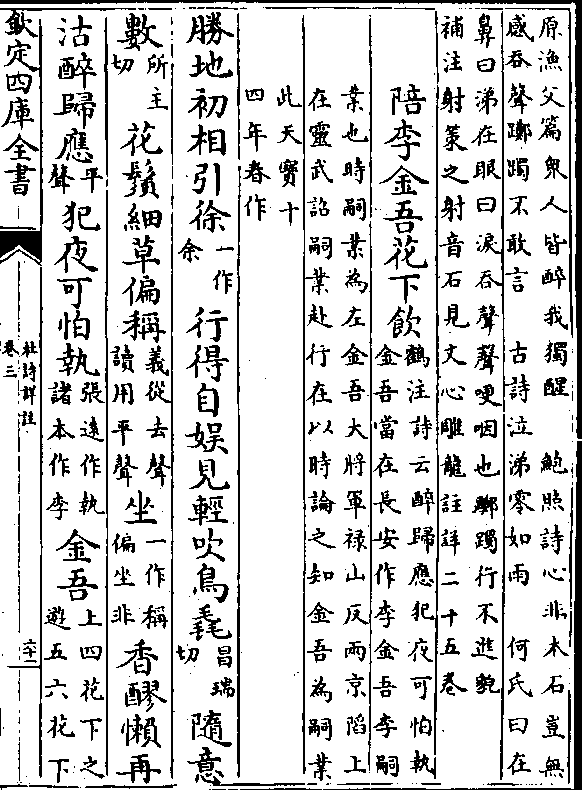 原漁父篇衆人皆醉我獨醒　鮑照詩心非木石豈無
感吞聲躑躅不敢言　古詩泣涕零如雨　何氏曰在
鼻曰涕在眼曰淚吞聲聲哽咽也躑躅行不進貌
補注射策之射音石見文心雕龍註詳二十五卷
陪李金吾花下飲
鶴注詩云醉歸應犯夜可怕執
金吾當在長安作李金吾李嗣
業也時嗣業為左金吾大將軍禄山反兩京陷上
在靈武詔嗣業赴行在以時論之知金吾為嗣業
此天寶十
四年春作
勝地初相引徐一作余行得自娛見輕吹鳥毳昌瑞切隨意
數所主切花鬚細草偏稱義從去聲讀用平聲坐一作稱偏坐非香醪懶再
沽醉歸應平聲犯夜可怕執張遠作執諸本作李金吾上四花下之遊五六花下
欽定四庫全書
杜詩詳註
卷三
六十二